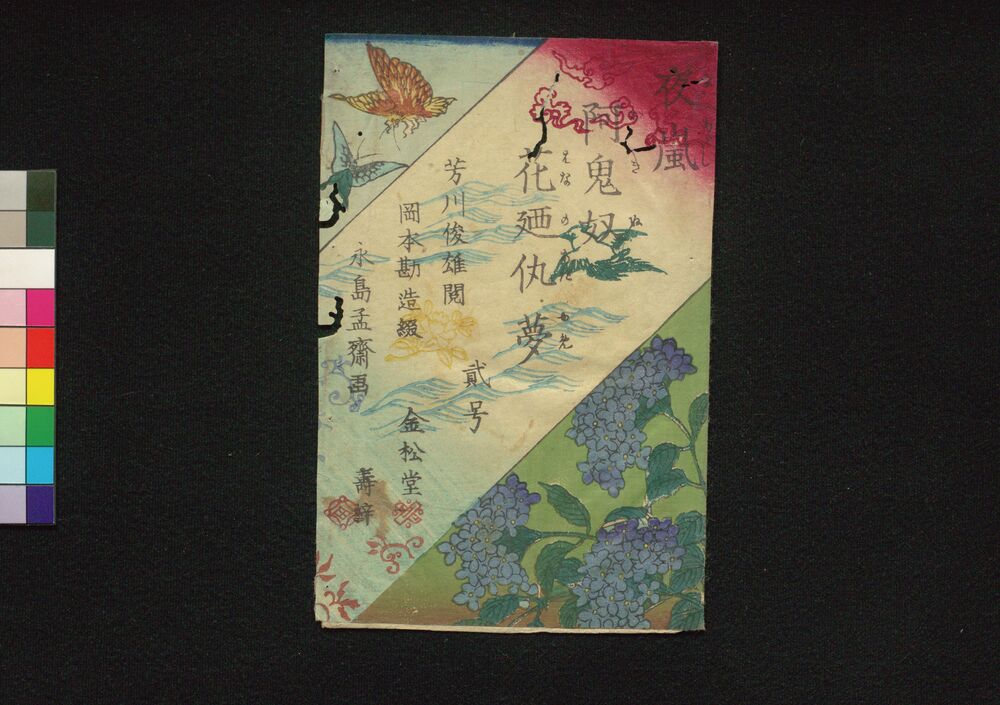 夜嵐
阿鬼奴
花廼仇夢
芳川俊雄閲
岡本勘造綴
永島孟齋画
貳号
金松堂
壽梓